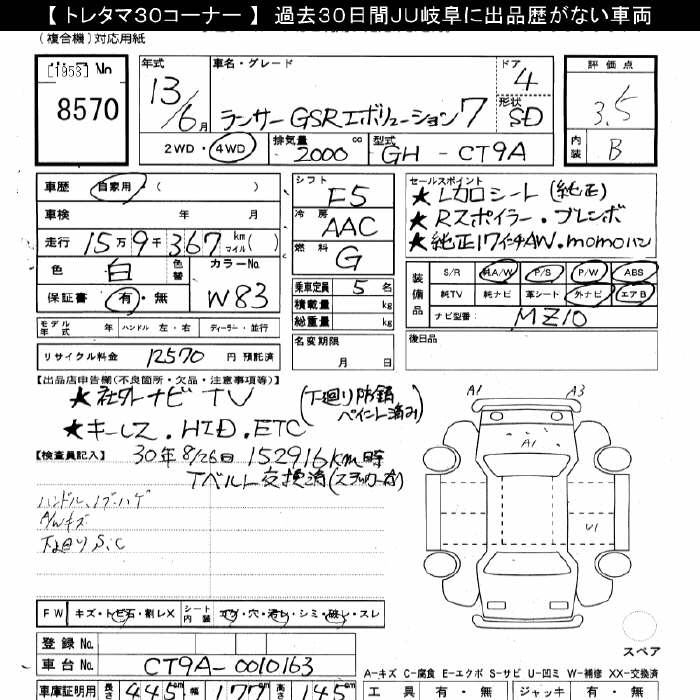 【 トレタマ30コーナー 】 過去30日間JU岐阜に出品歴がない車両
(複合機)対応用紙
[1953] No
8570
年式
13/6月
車名・グレード
ランサー GSRエボリューション7
ドア 4
形状 SD
評価点
3.5
内装 B
2WD・4WD
排気量 2000 cc
型式 GH - CT9A
車歴 自家用・( )
車検 年 月
走行 15万9千367 km マイル( )
色 白 色替 カラーNo.
W83
保証書 有・無
シフト F5
冷房 AAC
燃料 G
乗車定員 5 名
積載量 kg
総重量 kg
セールスポイント
★レカロシート(純正)
★Rスポイラー・ブレンボ
★純正17インチAW.momoハン
装備品
S/R AA/W P/S P/W ABS
純TV 純ナビ 革シート 外ナビ エアB
ナビ型番 MZ10
モデル年式 年 ハンドル 左・右 ディーラー・並行
名変期限
月 日
後日品
リサイクル料金 12570 円 預託済
【出品店申告欄(不良箇所・欠品・注意事項等)】
★社外ナビ TV (下廻り防錆ペイント済み)
★キーレス.HID.ETC
【検査員記入】 30年8/26日 152916km時
Tベルト交換済(ステッカー有)
A/Wキズ
下廻りS.C
A1
A3
A1
U1
FW キズ・トビ石・割レX シート内装 コゲ・穴・汚レ・シミ・破レ・スレ
スペア
登録 No.
車台 No. CT9A-0010163
A-キズ C-腐食 E-エクボ S-サビ U-凹ミ W-補修 XX-交換済
車庫証明用 長さ 445 cm 幅 177 cm 高さ 145 cm
工具 有・無 ジャッキ 有・無